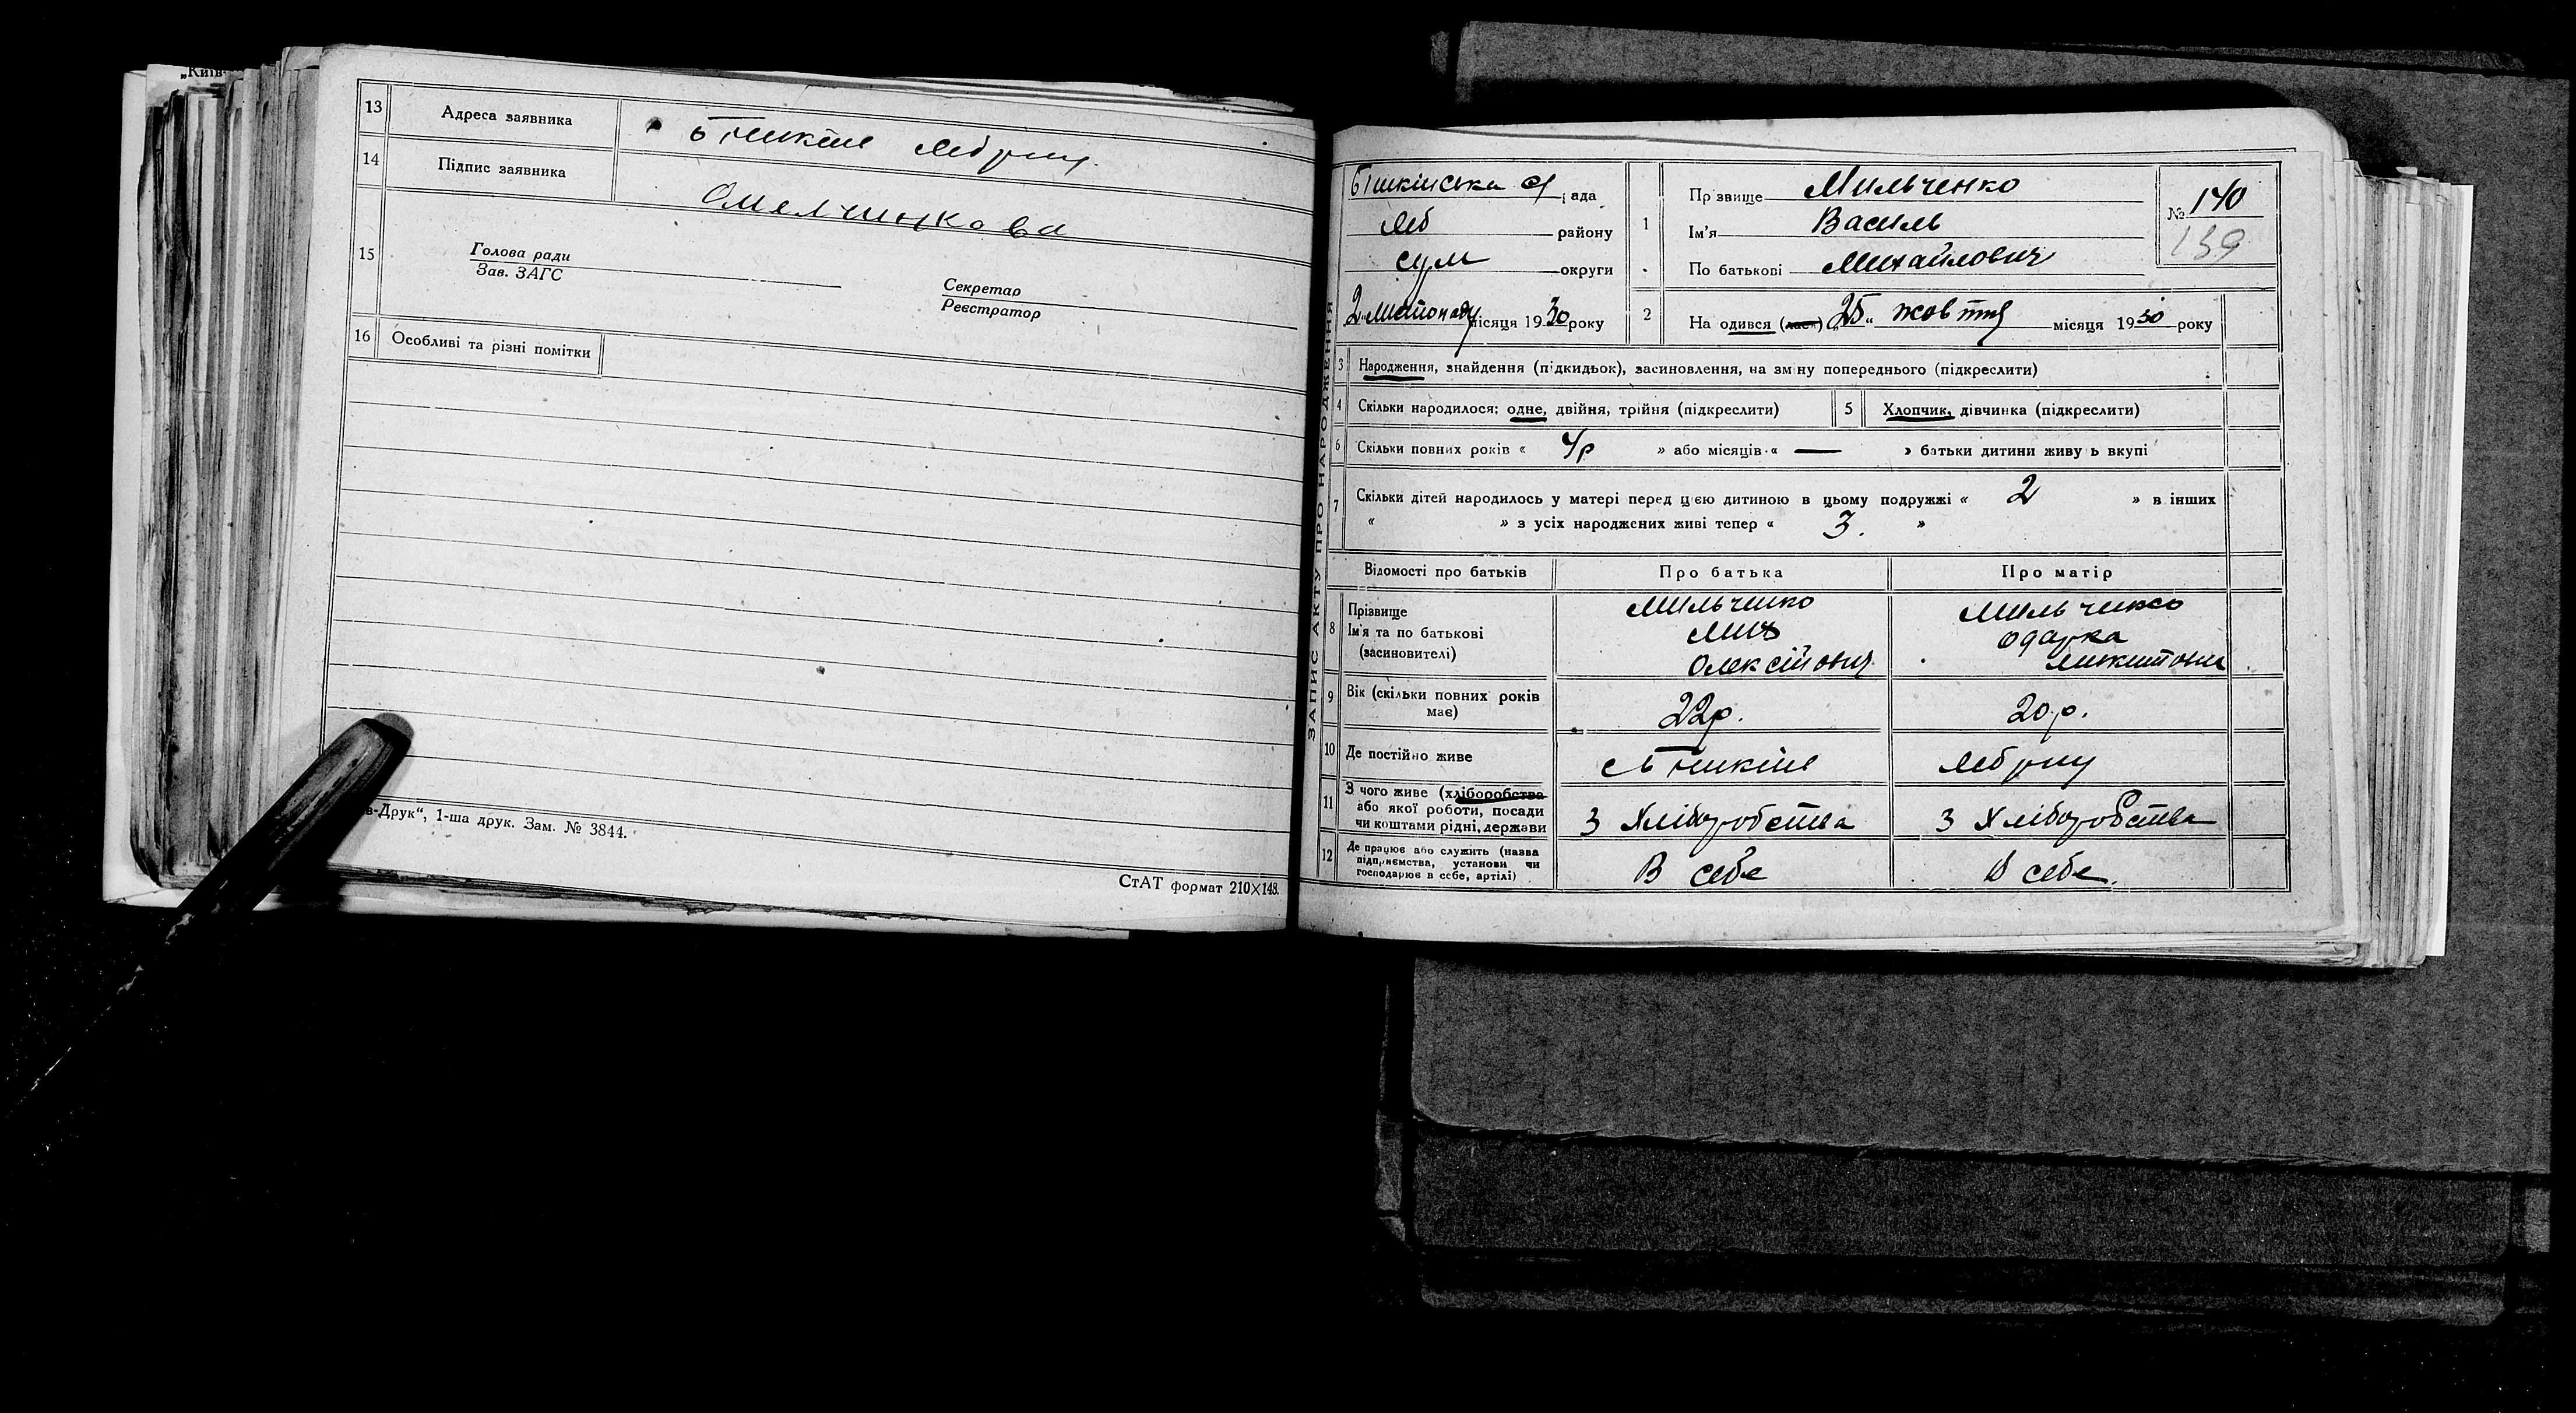 „Київ-
13 Адреса заявника Бішкінь Леб рну
14 Підпис заявника
Омелчинкова
15 Голова ради
Зав. ЗАГС
Секретар
Реєстратор
16 Особливі та різні помітки
в-Друк“, 1-ша друк. Зам. № 3844.
СтАТ формат 210×148.
ЗАПИС АКТУ ПРО НАРОДЖЕННЯ
Бішкінська с/рада
Леб району
Сум округи
2 „листопаду місяця 1930 року
1 Прізвище Мильченко
Ім'я Василь
По батькові Михайлович
№ 140
139
2 На одився (лася) „25“ жовтня місяця 1930 року
3 Народження, знайдення (підкидьок), засиновлення, на зміну попереднього (підкреслити)
4 Скільки народилося: одне, двійня, трійня (підкреслити) 5 Хлопчик, дівчинка (підкреслити)
6 Скільки повних років « 4р » або місяців « — » батьки дитини живу ь вкупі
7 Скільки дітей народилось у матері перед цією дитиною в цьому подружжі « 2 » в інших
« » з усіх народжених живі тепер « 3. »
Відомості про батьків Про батька Про матір
8 Прізвище Мильченко Мильченко
Ім'я та по батькові Мих Одарка
(засиновителі) Олексійович Микитовна
9 Вік (скільки повних років має) 22р. 20р.
10 Де постійно живе с Бішкінь Леб рну
11 З чого живе (хліборобства
або якої роботи, посади
чи коштами рідні, держави З Хліборобства З Хліборобства
12 Де працює або служить (назва
підприємства, установи чи
господарює в себе, артілі) В себе В себе.